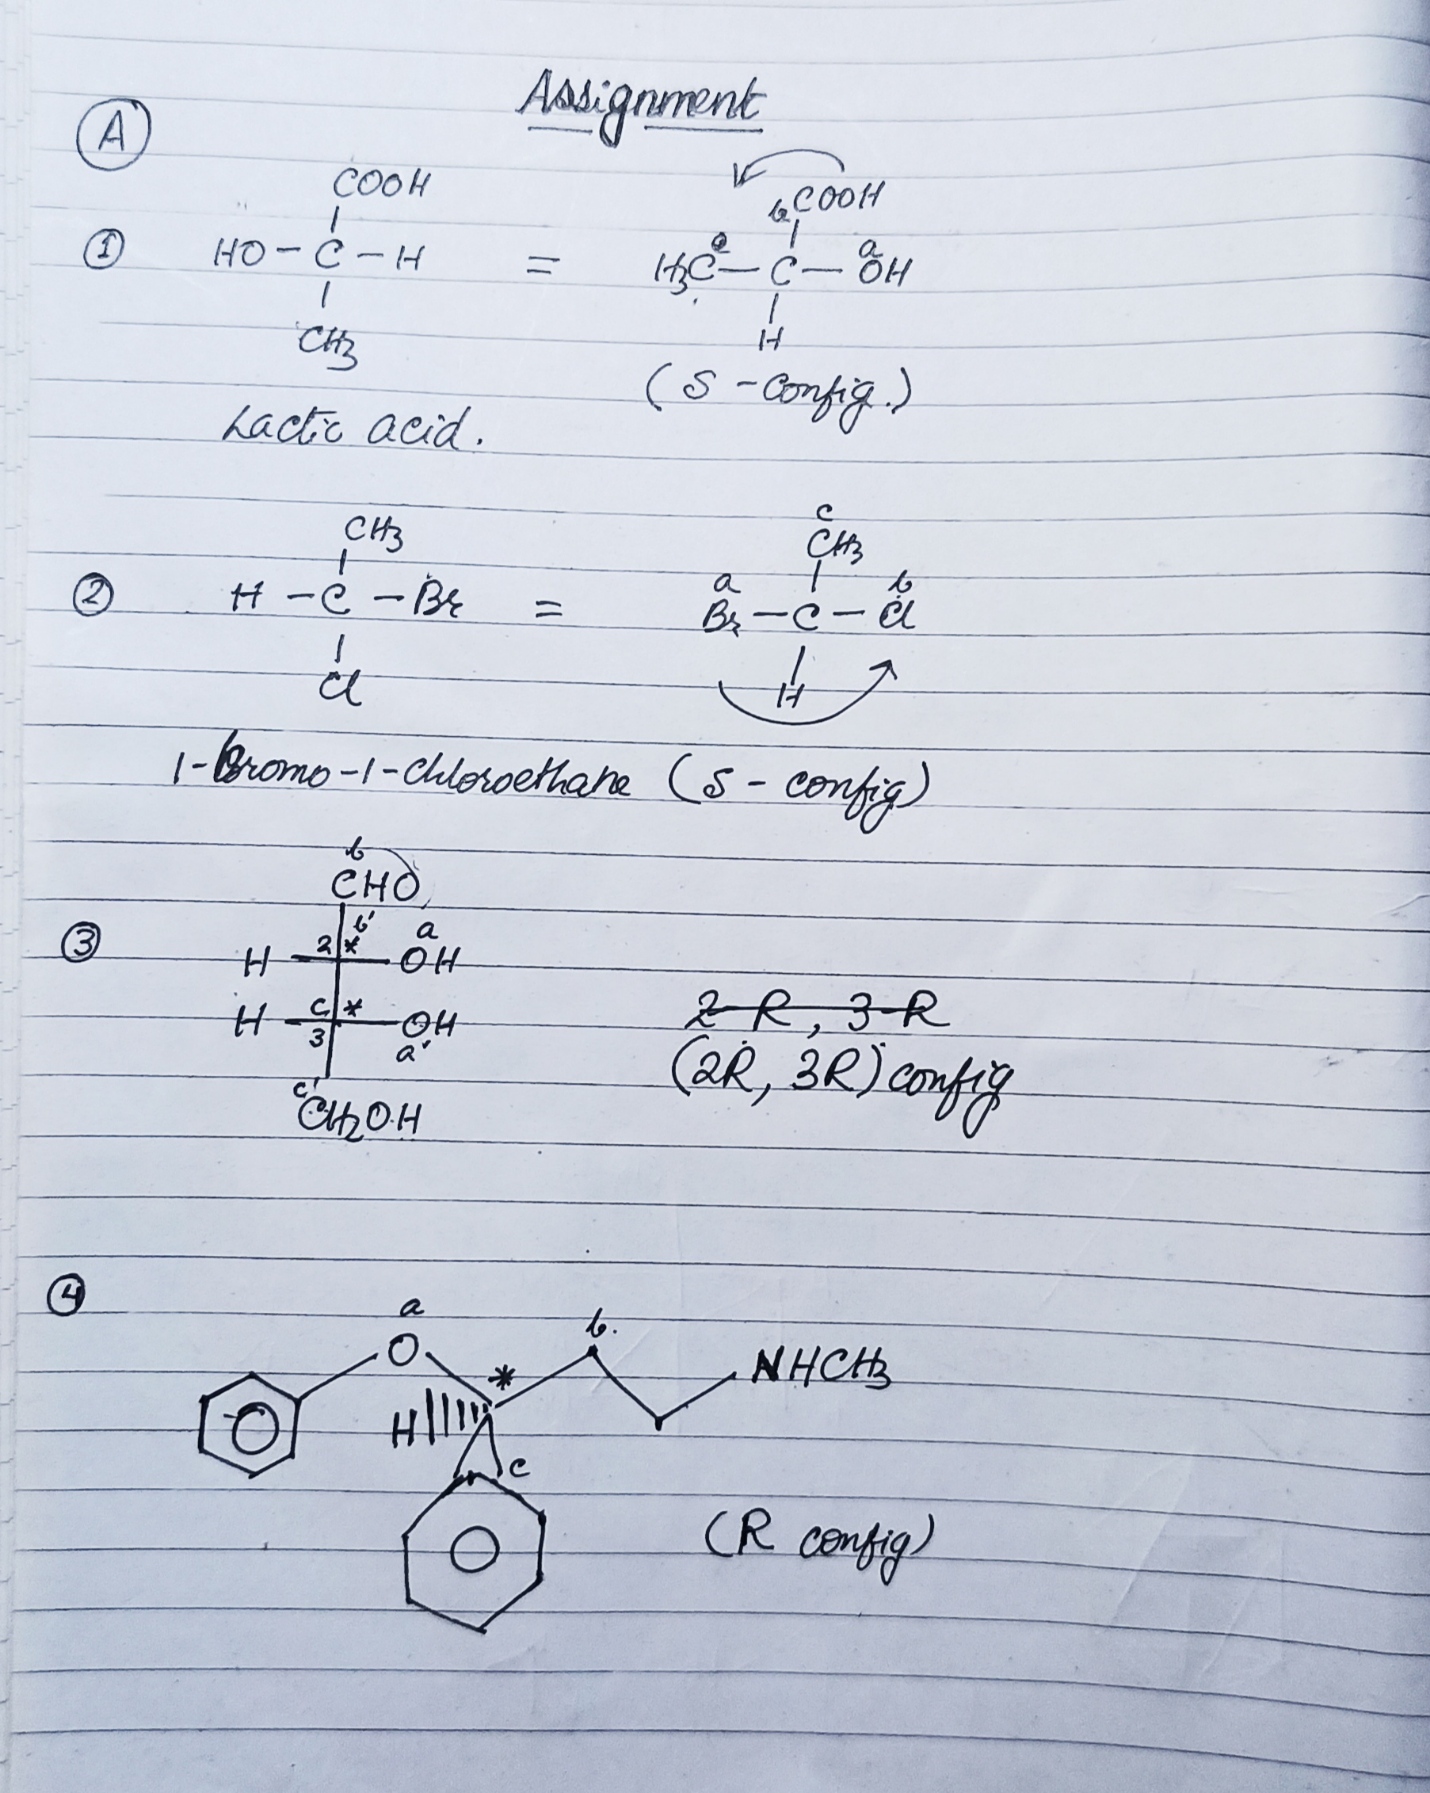 Assignment
A
1 COOH HO-C-H CH3 = H3C-C-OH COOH H b a
(S-Config.)
Lactic acid.
2 CH3 H-C-Br Cl = c CH3 a b Br-C-Cl H
1-Bromo-1-Chloroethane (S-config)
b
CHO
3 b' a
H 2 * OH
H C * OH
3 a'
c' CH2OH
2-R, 3-R
(2R, 3R) config
4 a b.
O * NHCH3
H
c
(R config)